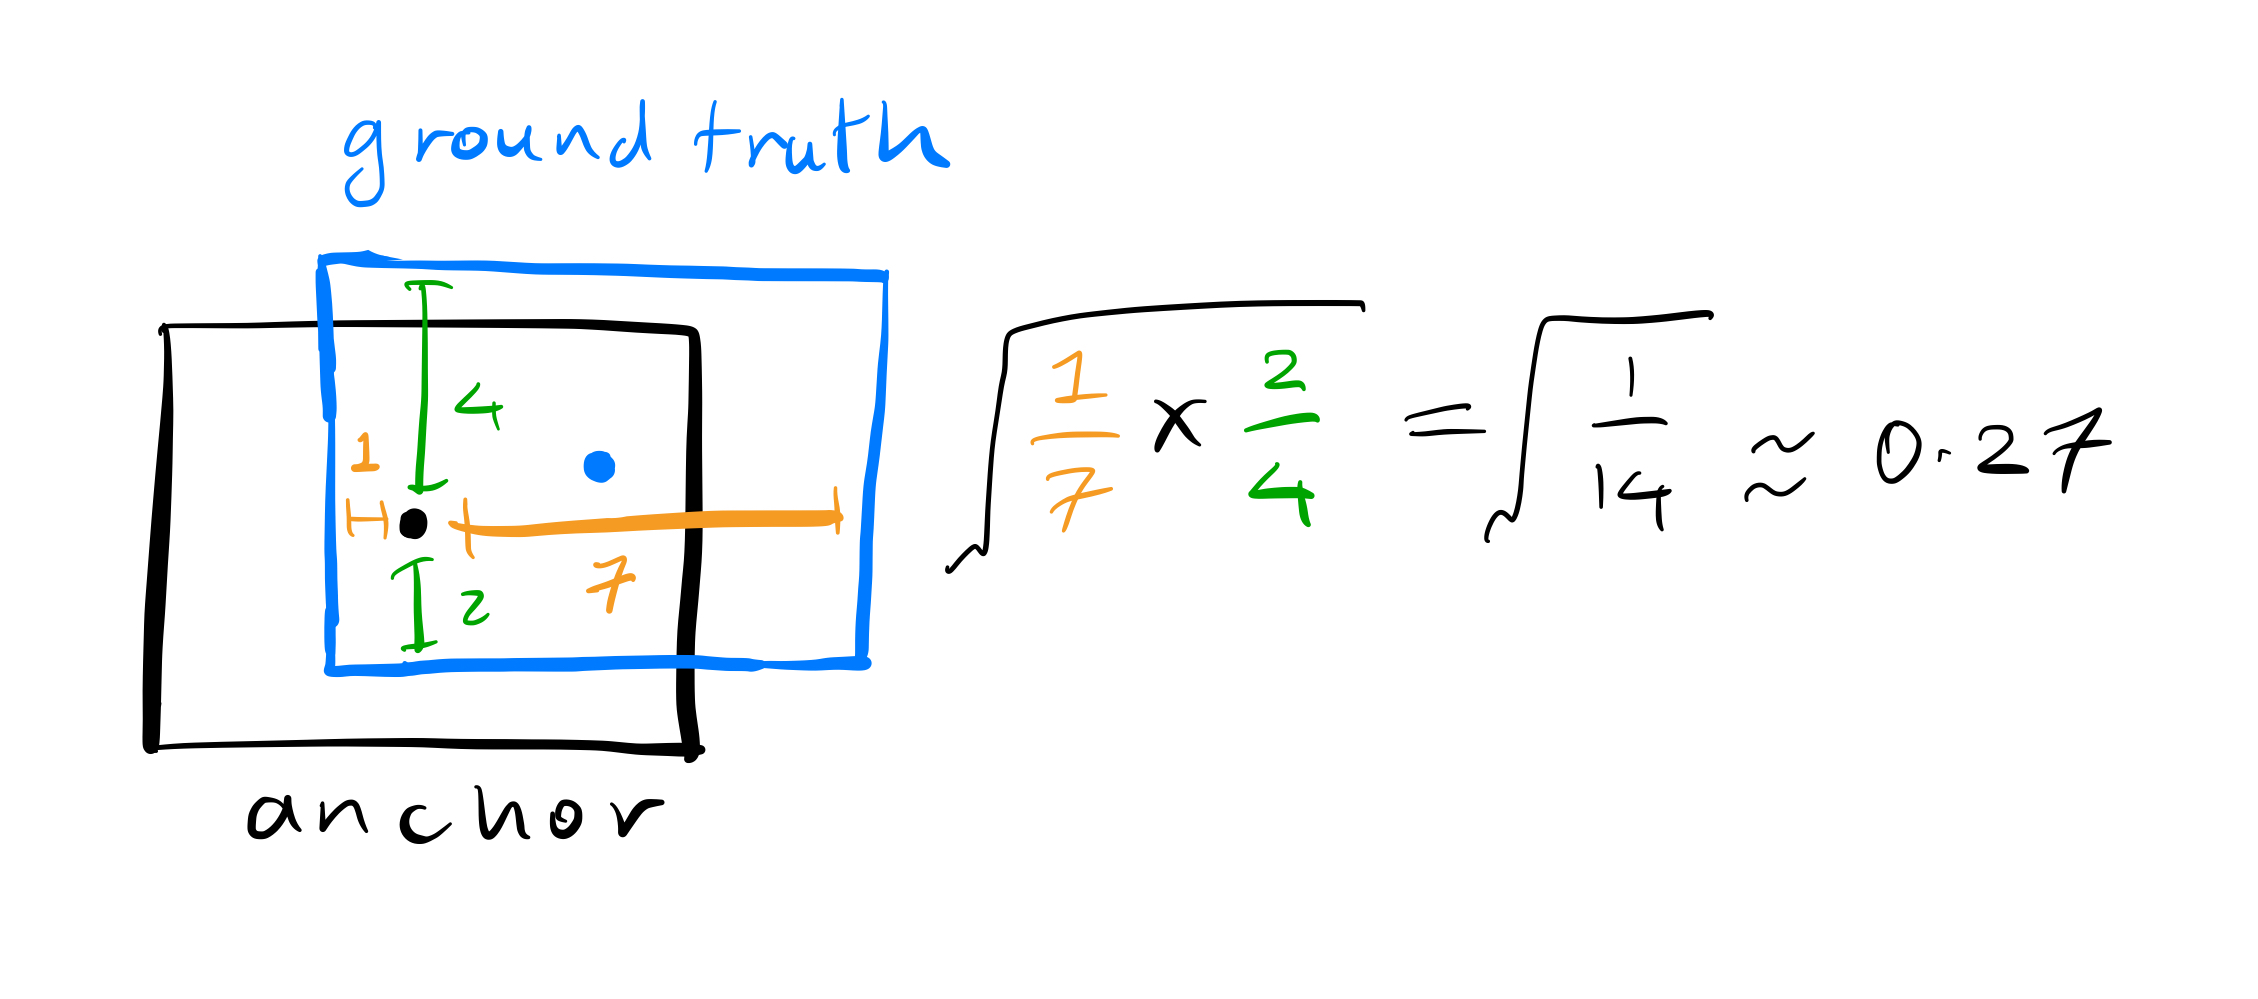 ground truth
4
1
7
2
anchor
√(1/7 × 2/4) = √(1/14) ≈ 0.27